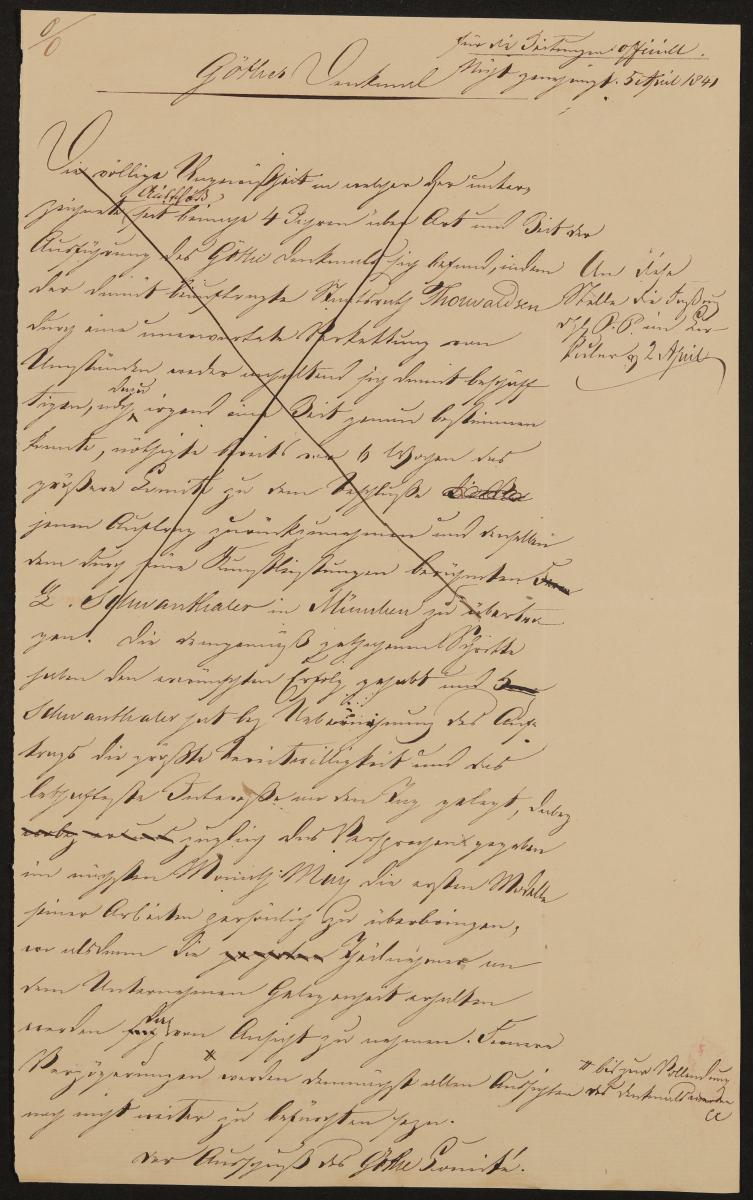 für die Zeitungen officiell.
Göthes Denkmal
Nicht genehmigt. 5 April 1841
Die völlige Ungewißheit in welcher der unter-
zeichnete Ausschuß seit beinahe 4 Jahren über Art und Zeit der
Ausführung des Göthe Denkmals sich befand, indem
der damit beauftragte Staatsrath Thorwaldsen
durch eine unerwartete Verkettung von
Umständen weder anhaltend sich damit beschäf-
tigen, noch dazu irgend eine Zeit genau bestimmen
konnte, nöthigte bereits vor 6 Wochen das
größere Comité zu dem Beschluße
jenen Auftrag zurückzunehmen und denselben
dem durch seine Kunstleistungen berühmten
L. Schwanthaler in München zu übertra-
gen. Die demgemäß gethanen Schritte
haben den erwünschten Erfolg gehabt und
Schwanthaler hat bey Uebernehmung des Auf-
trags die größte Bereitwilligkeit und das
lebhafteste Interesse an den Tag gelegt, dabey
zugleich das Versprechen gegeben
im nächsten Monath May die ersten Modelle
seiner Arbeiten persönlich zu überbringen,
wo alsdann die Theilnehmer an
dem Unternehmen Gelegenheit erhalten
werden davon Ansicht zu nehmen. Fernere
Verzögerungen werden demnächst allen Aussichten
nach nicht weiter zu befürchten seyn.
Der Ausschuß des Göthe Comité.
An diese
Stelle die Fassung
P. P. im Cir-
kular 2 April
bis zur Vollendung
des Denkmals werden